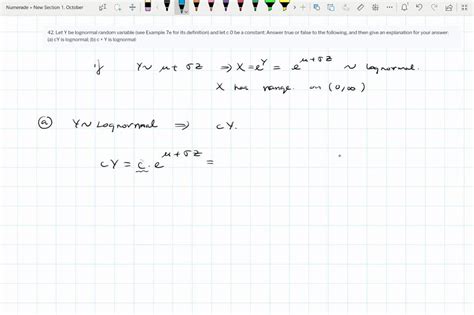 Numerade » New Section 1, October
42. Let Y be lognormal random variable (see Example 7e for its definition) and let c.0 be a constant. Answer true or false to the following, and then give an explanation for your answer.
(a) cY is lognormal; (b) c + Y is lognormal
if Y ~ μ + σZ ⇒ X = e^Y = e^{μ+σZ} ~ lognormal.
X has range on (0,∞)
(a) Y ~ Lognormal ⇒ cY.
cY = c · e^{μ+σZ} =